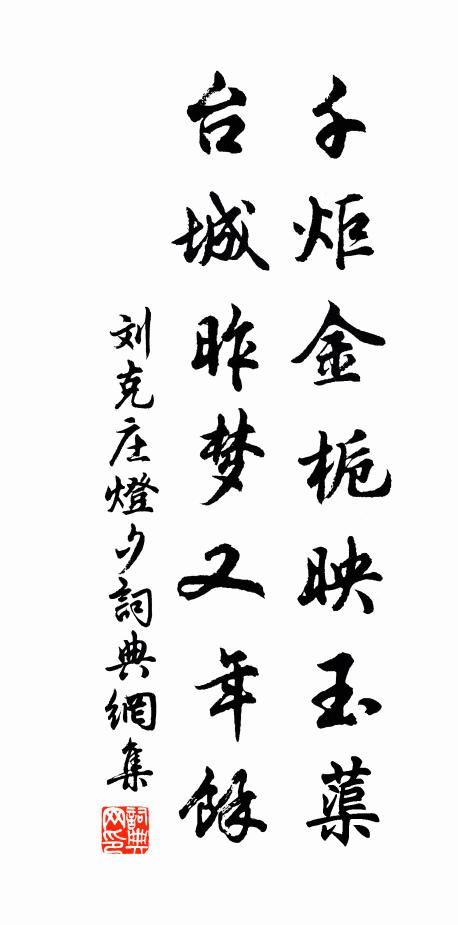 千炬金栀映玉蕖
台城昨梦又年馀
刘克庄燈夕詞典網集
詞典网印